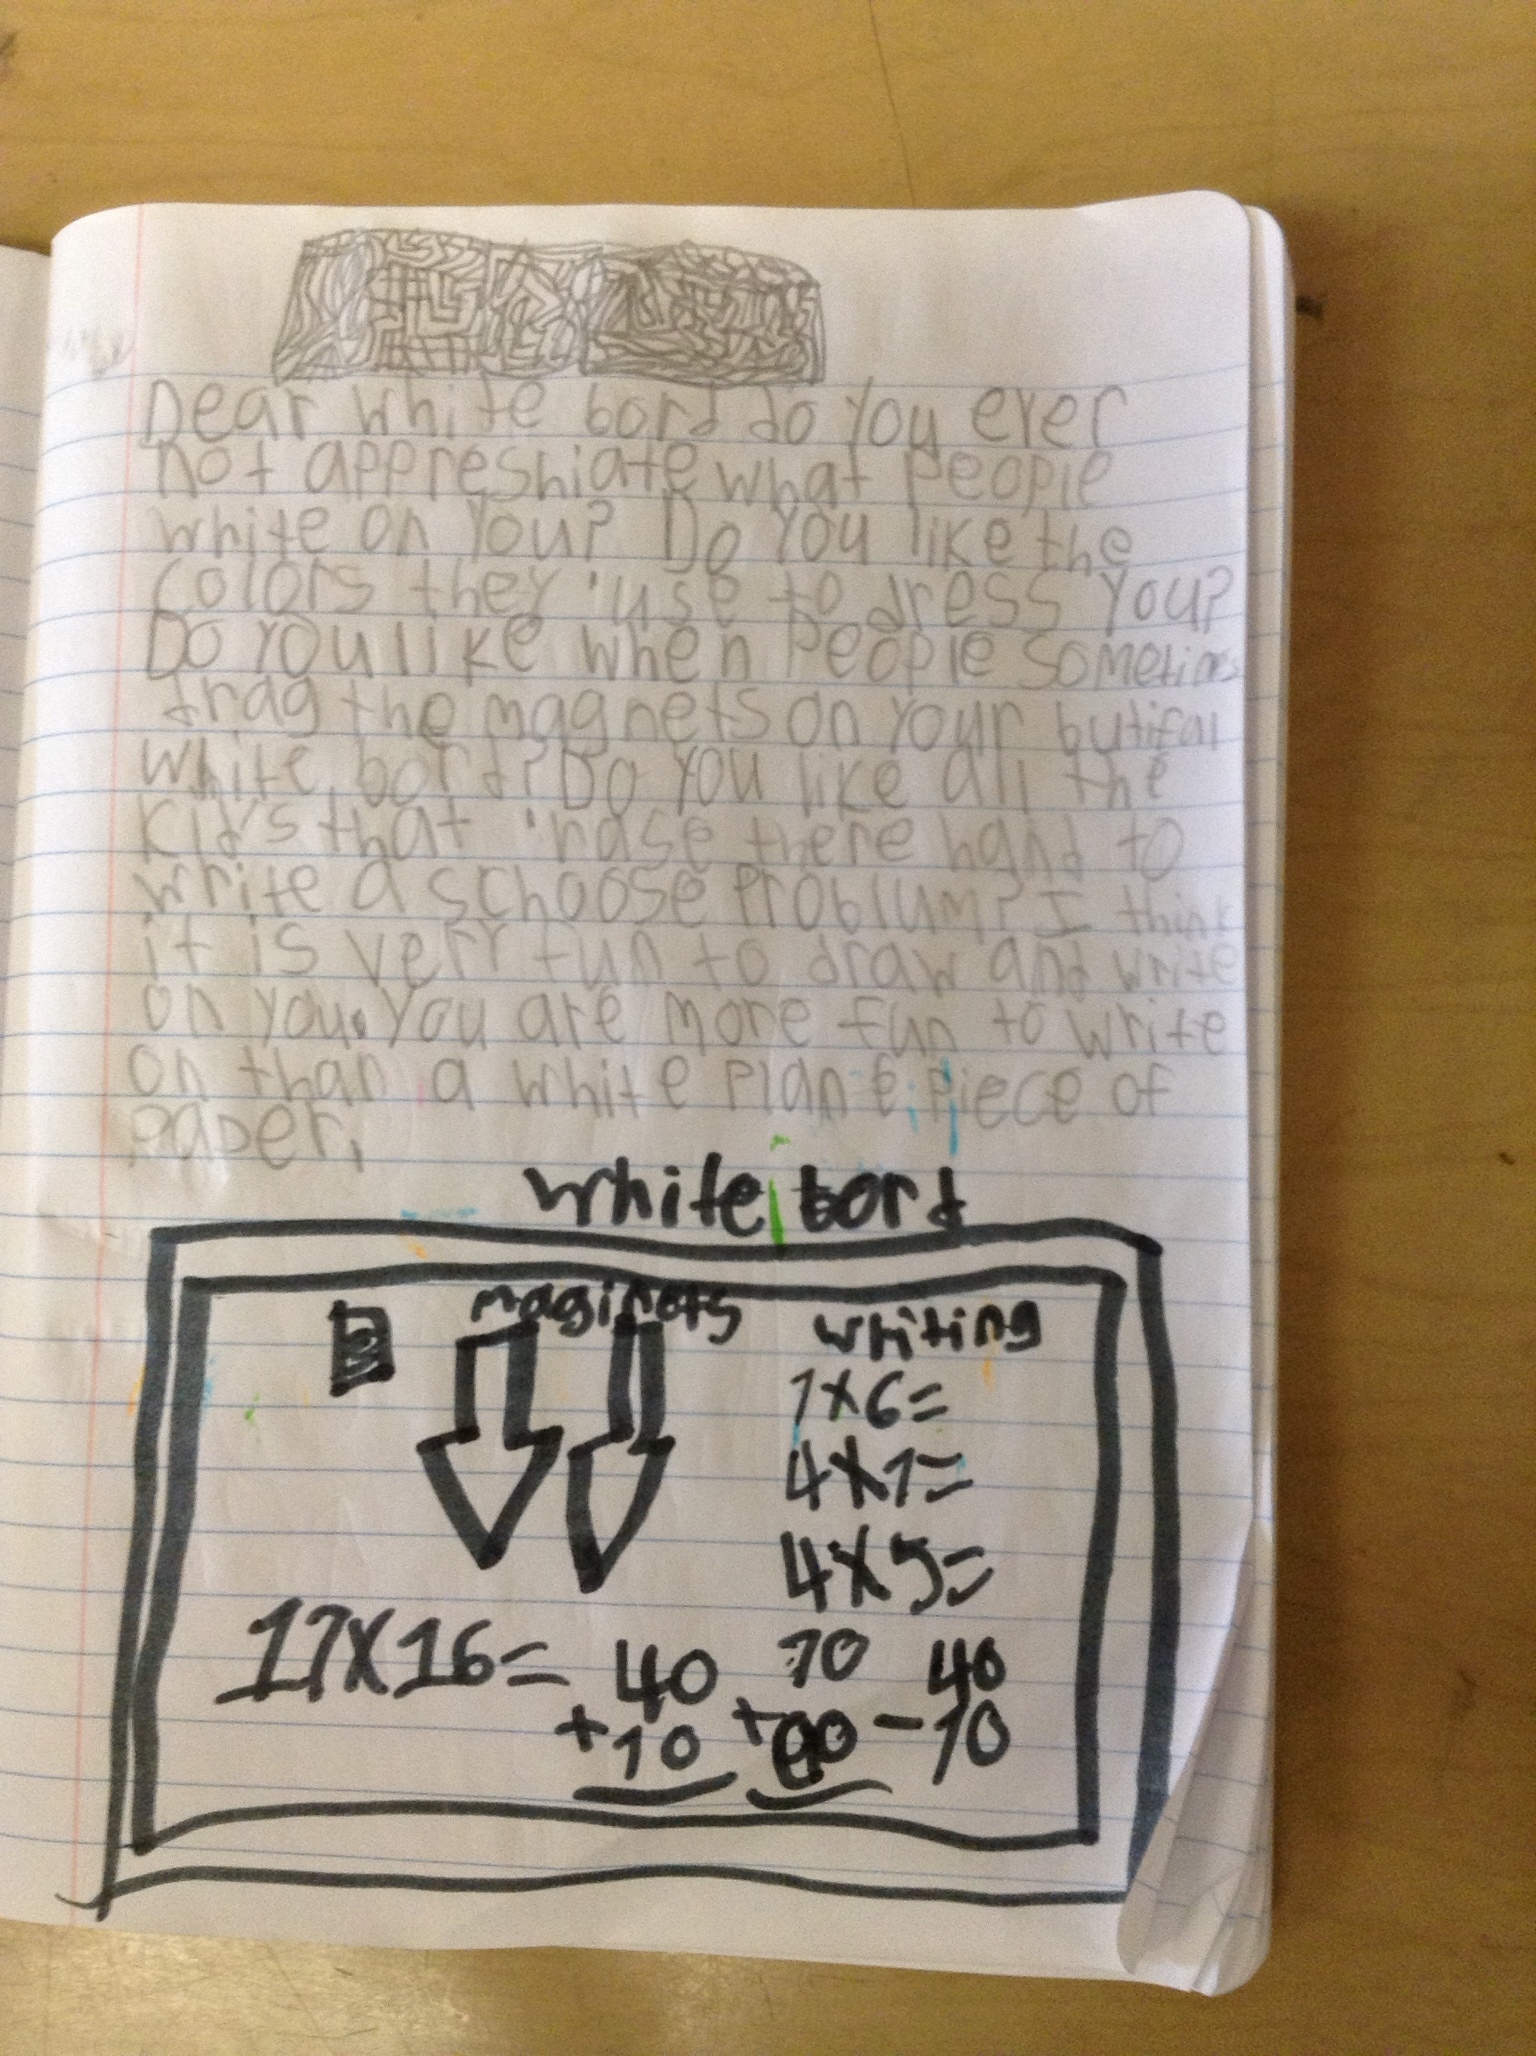 Dear white bord do you ever
not appreshiate what people
white on you? Do you like the
colors they use to dress you?
Do you like when people sometimes
drag the magnets on your butifal
white bord? Do you like all the
kid's that rase there hand to
write a schoose problum? I think
it is very fun to draw and write
on you. You are more fun to write
on than a white plane piece of
paper.
white bord
maginets writing
1x6=
4x1=
4x5=
17x16= 40 70 40
+10 +90 -10